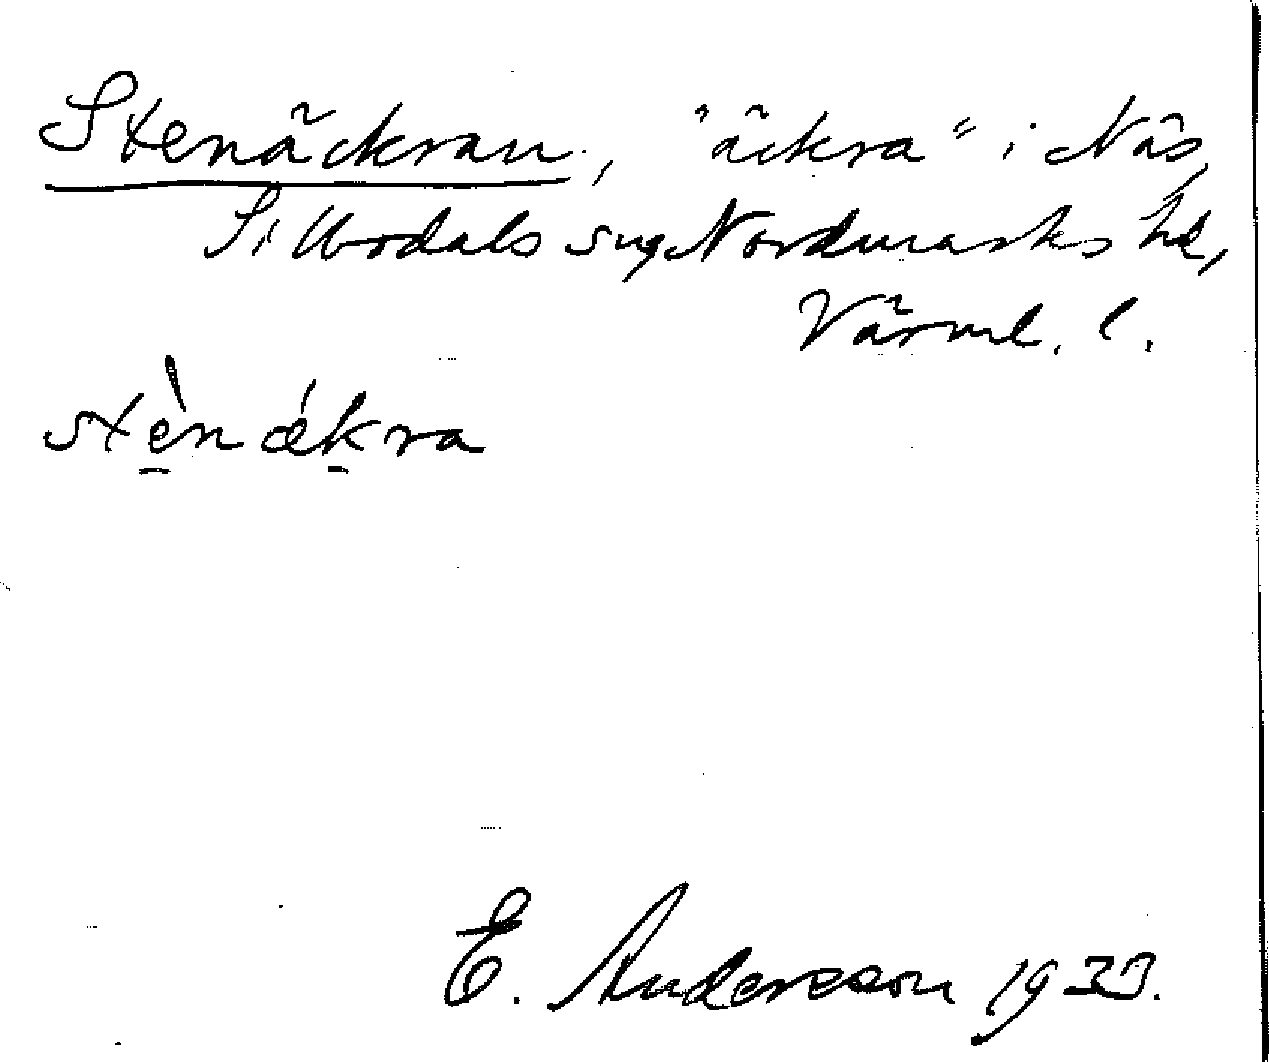 Stenäckran, "äckra" i Näs,
Sillbodals sn, Nordmarks hd,
Värml. l.
stènǽkra
E. Andersson 1933.